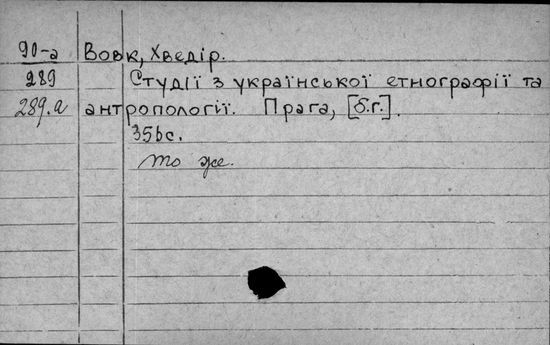 90-а Вовк, Хведір.
289 Студії з української етнографії та
289.а антропології. Прага, [б.г.].
356с.
то же.